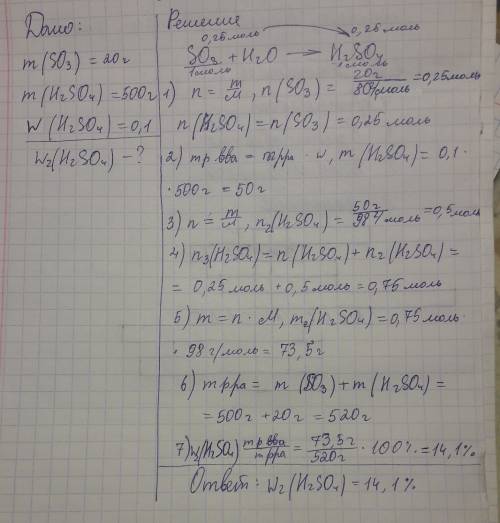 Дано:
m(SO₃) = 20г
m(H₂SO₄) = 500г
w(H₂SO₄) = 0,1
w₂(H₂SO₄) – ?
Решение
0,25 моль 0,25 моль
SO₃ + H₂O → H₂SO₄
1 моль 1 моль
1) n = m/M, n(SO₃) = 20г/80г/моль = 0,25 моль
n(H₂SO₄) = n(SO₃) = 0,25 моль
2) m р.вва = mрра · w, m(H₂SO₄) = 0,1 ·
· 500г = 50г
3) n = m/M, n₂(H₂SO₄) = 50г/98г/моль = 0,5 моль
4) n₃(H₂SO₄) = n(H₂SO₄) + n₂(H₂SO₄) =
= 0,25 моль + 0,5 моль = 0,75 моль
5) m = n · M, m₂(H₂SO₄) = 0,75 моль ·
· 98 г/моль = 73,5 г
6) m рра = m(SO₃) + m(H₂SO₄) =
= 500г + 20г = 520г
7) w₂(H₂SO₄) = m р.вва/m рра = 73,5г/520г · 100% = 14,1%
Ответ: w₂(H₂SO₄) = 14,1%